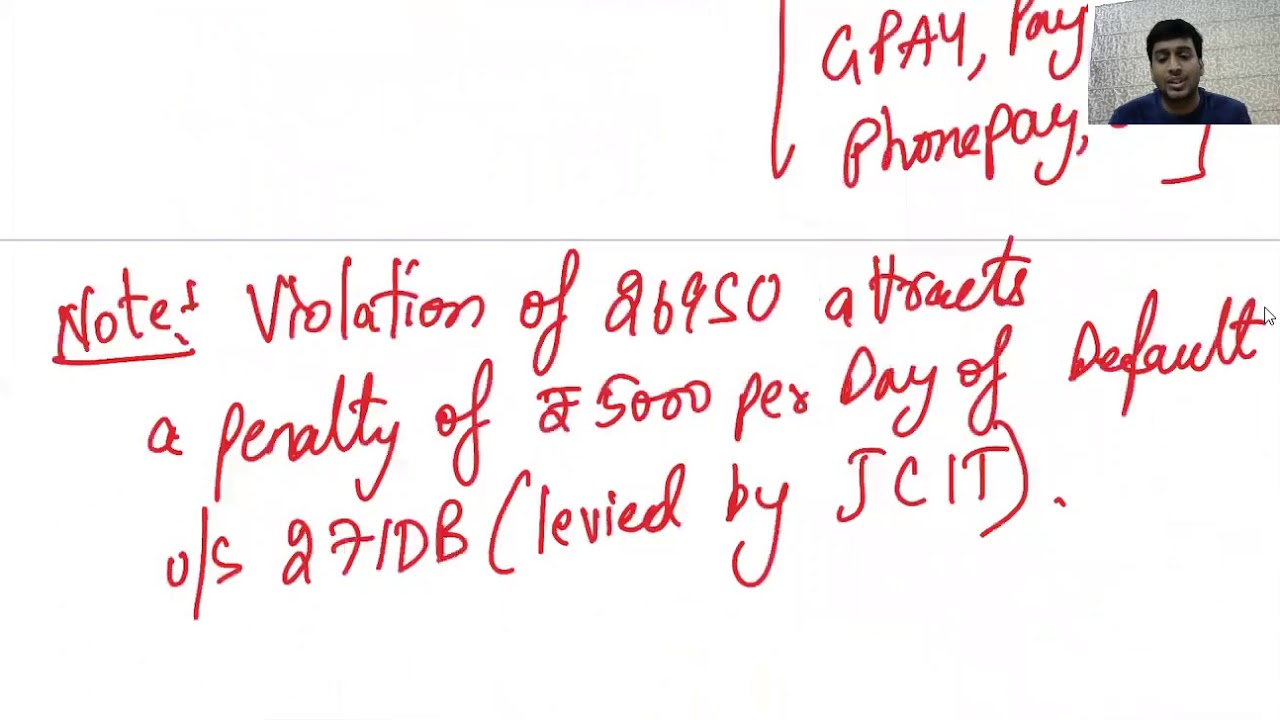 GPAY, Pay
Phonepay,
Note: Violation of 269SO attracts
a penalty of ₹5000 per Day of Default
u/s 271DB (levied by JCIT).